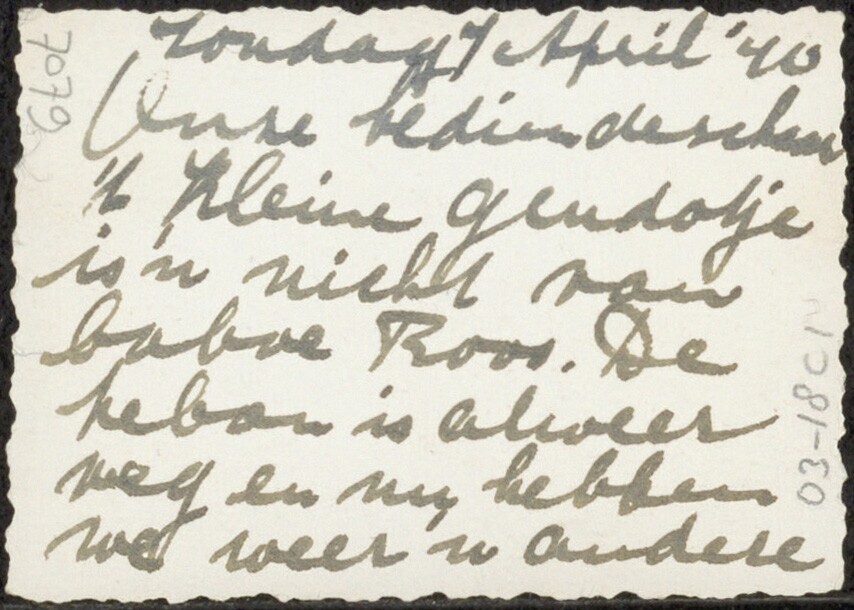 Zondag 7 April '40
Onze bediendeschaar
't kleine gendotje
is 'n nicht van
baboe Roos. De
kebon is alweer
weg en nu hebben
we weer 'n andere
7079
03-18C1